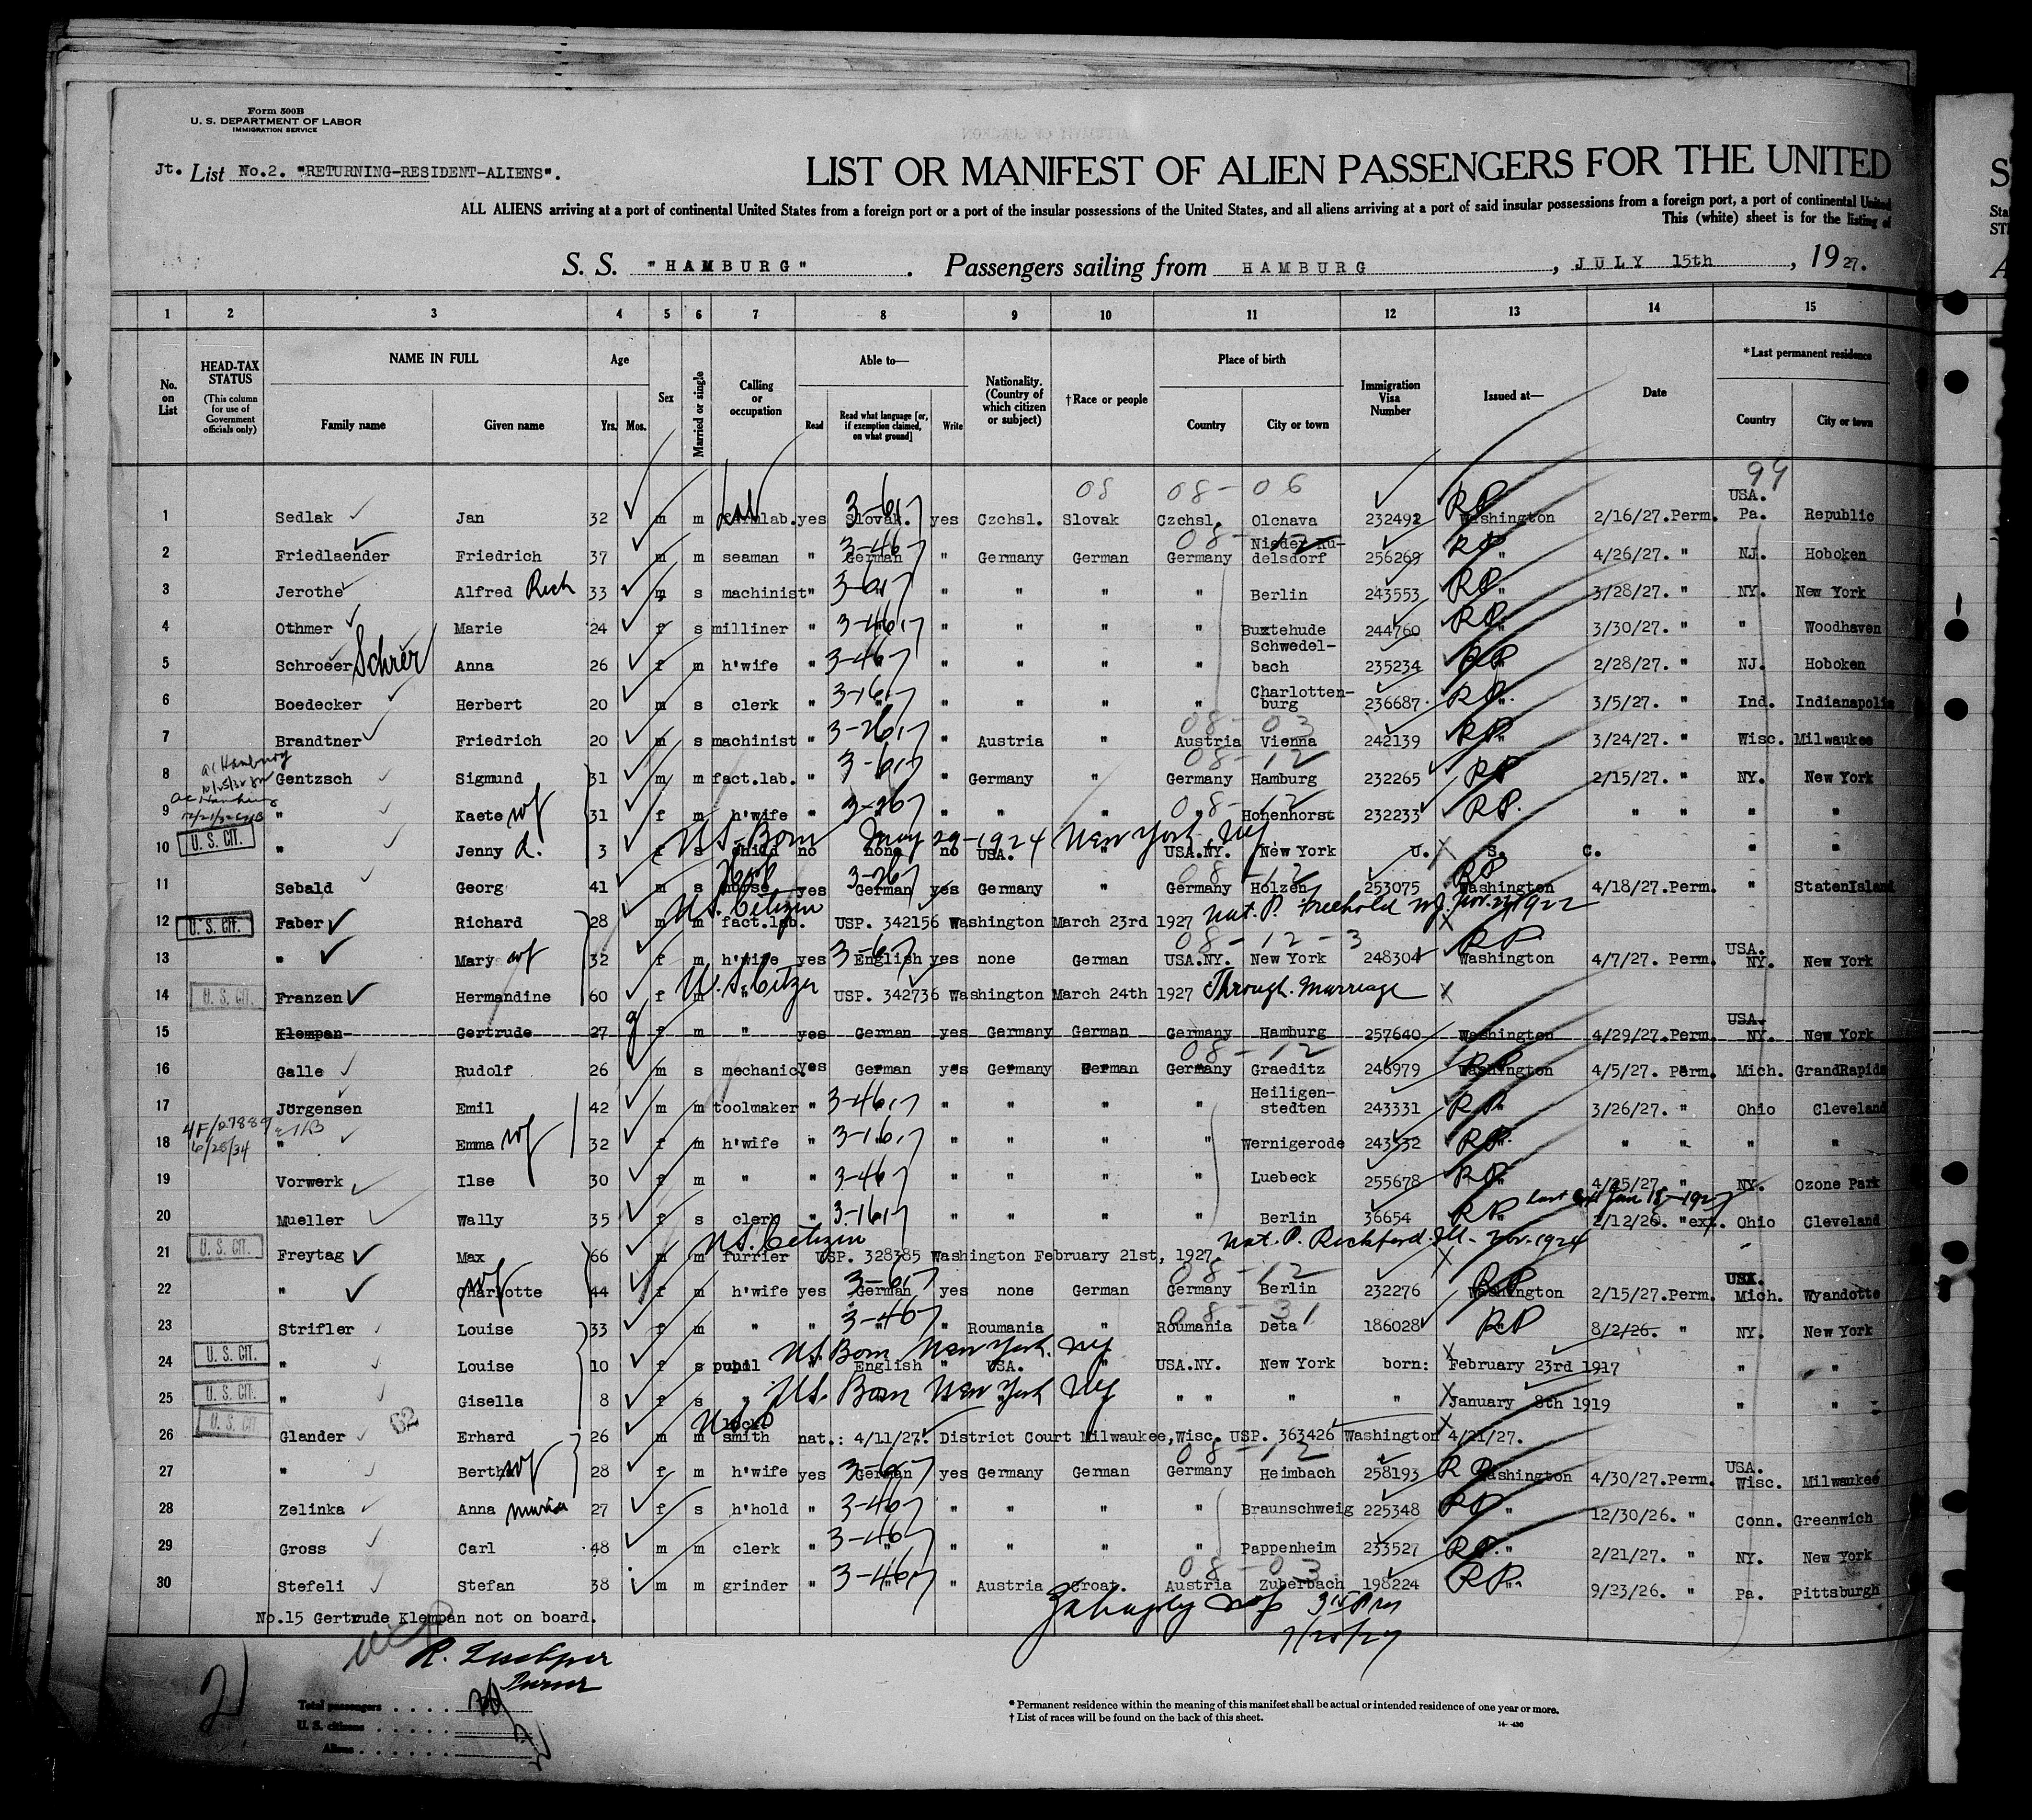 Form 500B
U. S. DEPARTMENT OF LABOR
IMMIGRATION SERVICE
Jt. List No.2. "RETURNING-RESIDENT-ALIENS".
LIST OR MANIFEST OF ALIEN PASSENGERS FOR THE UNITED
ALL ALIENS arriving at a port of continental United States from a foreign port or a port of the insular possessions of the United States, and all aliens arriving at a port of said insular possessions from a foreign port, a port of continental United
This (white) sheet is for the listing of
S. S. "HAMBURG". Passengers sailing from HAMBURG, JULY 15th, 1927.
1 2 3 4 5 6 7 8 9 10 11 12 13 14 15
No. on List
HEAD-TAX STATUS (This column for use of Government officials only)
NAME IN FULL Family name Given name
Age Yrs. Mos.
Sex
Married or single
Calling or occupation
Able to— Read Read what language [or, if exemption claimed, on what ground] Write
Nationality. (Country of which citizen or subject)
†Race or people
Place of birth Country City or town
Immigration Visa Number
Issued at—
Date
*Last permanent residence Country City or town
08 08-06 99
1 Sedlak Jan 32 m m farmlab. yes Slovak. 3-617 yes Czchsl. Slovak Czchsl. Olcnava 232492 Washington RP 2/16/27. Perm. USA. Pa. Republic
2 Friedlaender Friedrich 37 m m seaman " German 3-467 " Germany German Germany 08-12 Nieder Ru-delsdorf 256269 " RP 4/26/27. " NJ. Hoboken
3 Jerothe Alfred Rich 33 m s machinist " 3-617 " " " " Berlin 243553 RP " 3/28/27. " NY. New York
4 Othmer Marie 24 f s milliner " 3-4617 " " " " Buxtehude 244760 RP " 3/30/27. " " Woodhaven
5 Schroeer Schrër Anna 26 f m h'wife " 3-467 " " " " Schwedel-bach 235234 RP " 2/28/27. " NJ. Hoboken
6 Boedecker Herbert 20 m s clerk " 3-1617 " " " " Charlotten-burg 236687 RP " 3/5/27. " Ind. Indianapolis
7 Brandtner Friedrich 20 m s machinist " 3-2617 " Austria " Austria 08-03 Vienna 242139 RP " 3/24/27. " Wisc. Milwaukee
8 Gentzsch Sigmund 31 m m fact.lab. " 3-617 " Germany " Germany 08-12 Hamburg 232265 RP " 2/15/27. " NY. New York
9 " Kaete wf 31 f m h'wife " 3-267 " " " " 08-12 Hohenhorst 232233 RP. " " " "
10 U. S. CIT. " Jenny d. 3 f s child no none no USA. " USA.NY. New York U. S. C. " "
US-Born May 29-1924 New York, NY
11 Sebald Georg 41 m s nurse yes German 3-267 yes Germany " Germany 08-12 Holzen 253075 Washington RP 4/18/27. Perm. " StatenIsland
12 U. S. CIT. Faber Richard 28 m m fact.lab. US. Citizen USP. 342156 Washington March 23rd 1927 Nat. P. Freehold NJ. Nov. 1922
13 " Mary wf 32 f m h'wife yes English 3-617 yes none German USA.NY. 08-12-3 New York 248304 Washington RP 4/7/27. Perm. USA. NY. New York
14 U. S. CIT. Franzen Hermandine 60 f m " U. S. Citizen USP. 342736 Washington March 24th 1927 Through. Marriage
15 Klempan Gertrude 27 f m " yes German yes Germany German Germany Hamburg 257640 Washington 4/29/27. Perm. USA. NY. New York
16 Galle Rudolf 26 m s mechanic. yes German yes Germany German Germany 08-12 Graeditz 246979 Washington RP 4/5/27. Perm. Mich. GrandRapids
17 Jörgensen Emil 42 m m toolmaker " 3-4617 " " " " Heiligen-stedten 243331 RP " 3/26/27. " Ohio Cleveland
18 6/28/34 " Emma wf 32 f m h'wife " 3-1617 " " " " Wernigerode 243332 RP " " " " "
19 Vorwerk Ilse 30 f m " " 3-467 " " " " Luebeck 255678 RP " 4/25/27. " NY. Ozone Park
20 Mueller Wally 35 f s clerk " 3-1617 " " " " Berlin 36654 RP Last Ext Jan 18-1927 2/12/26. "ext. Ohio Cleveland
21 U. S. CIT. Freytag Max 66 m m furrier US. Citizen USP. 328385 Washington February 21st, 1927. Nat. P. Rockford. Ill. - Nov. 1924
22 " Charlotte wf 44 f m h'wife yes German 3-617 yes none German Germany 08-12 Berlin 232276 Washington RP 2/15/27. Perm. USA. Mich. Wyandotte
23 Strifler Louise 33 f m " " " 3-467 " Roumania " Roumania 08-31 Deta 186028 RP 8/2/26. " NY. New York
24 U. S. CIT. " Louise 10 f s pupil " English " USA. " USA.NY. New York born: February 23rd 1917 " "
US. Born New York. NY
25 U. S. CIT. " Gisella 8 f s " " " " " " January 8th 1919 " "
US. Born New York NY
26 U. S. CIT. Glander 62 Erhard 26 m m lock-smith nat.: 4/11/27. District Court Milwaukee,Wisc. USP. 363426 Washington 4/21/27.
27 " Bertha wf 28 f m h'wife yes German 3-617 yes Germany German Germany 08-12 Heimbach 258193 Washington RP 4/30/27. Perm. USA. Wisc. Milwaukee
28 Zelinka Anna Maria 27 f s h'hold " 3-467 " " " " Braunschweig 225348 RP " 12/30/26. " Conn. Greenwich
29 Gross Carl 48 m m clerk " 3-467 " " " " Pappenheim 233527 RP " 2/21/27. " NY. New York
30 Stefeli Stefan 38 m m grinder " 3-4617 " Austria Croat. Austria 08-03 Zuberbach 198224 RP " 9/23/26. " Pa. Pittsburgh
No.15 Gertrude Klempan not on board.
7/25/27
2
Total passengers
U. S. citizens
Aliens
* Permanent residence within the meaning of this manifest shall be actual or intended residence of one year or more.
† List of races will be found on the back of this sheet.
14-430